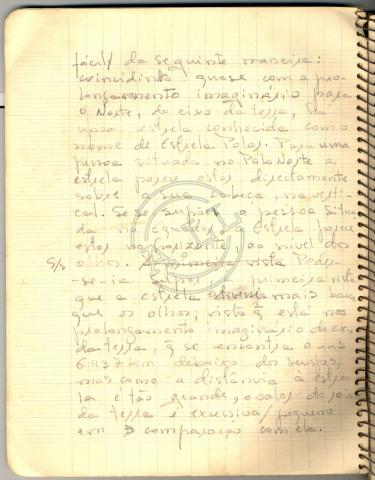 fácil/ da seguinte maneira:
coincidindo quase com a pro-
longamento imaginário para
o Norte, do eixo da terra, há
uma estrela conhecida com o
nome de Estrela Polar. Para uma
pessoa situada no Polo Norte a
estrela parece estar directamente
sobre a sua cabeça, na verti-
cal. Se se supõe a pessoa situa
da no equador, a estrela parece
estar no horizonte, ao nível dos
olhos. À primeira vista Poder-
se-ia primeira vista
que a estrela estivesse mais baixa
que os olhos, visto q̃ está no
prolongamento imaginário do eixo
da terra, q̃ se encontra a uns
6.437 km debaixo dos seus pés,
mas como a distância à estre-
la é tão grande, o valor do raio
da terra é excessiva/ pequeno
em comparação com ela.